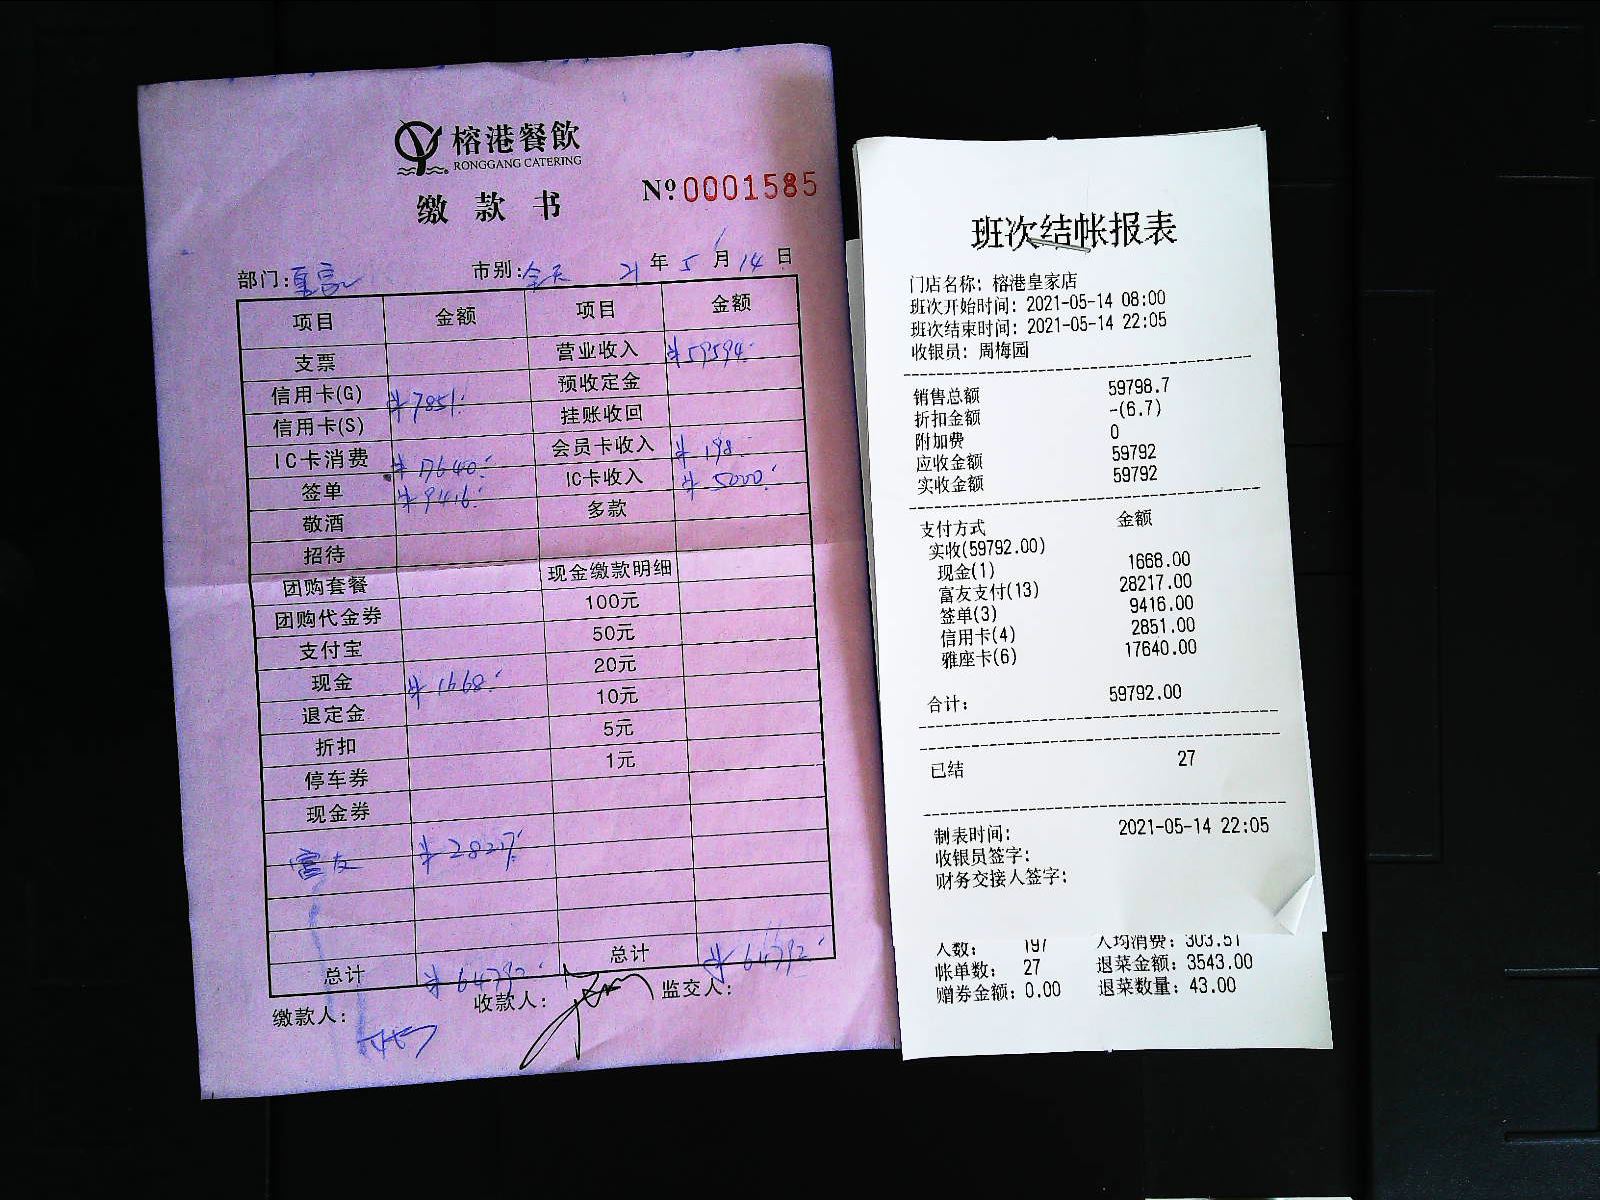 榕港餐飲
RONGGANG CATERING
缴款书
№0001585
部门: 市别:全天 21年5月14日
项目 金额 项目 金额
支票 营业收入 ¥59594.-
信用卡(G) ¥7851.- 预收定金
信用卡(S) 挂账收回
IC卡消费 ¥17640.- 会员卡收入 ¥198.
签单 ¥9416.- IC卡收入 ¥5000.-
敬酒 多款
招待
团购套餐 现金缴款明细
团购代金券 100元
支付宝 50元
现金 ¥1668.- 20元
退定金 10元
折扣 5元
停车券 1元
现金券
富友 ¥28217.-
总计 ¥64792.- 总计 ¥64792.-
缴款人: 收款人: 监交人:
班次结帐报表
门店名称: 榕港皇家店
班次开始时间: 2021-05-14 08:00
班次结束时间: 2021-05-14 22:05
收银员: 周梅园
销售总额 59798.7
折扣金额 -(6.7)
附加费 0
应收金额 59792
实收金额 59792
支付方式 金额
实收(59792.00)
现金(1) 1668.00
富友支付(13) 28217.00
签单(3) 9416.00
信用卡(4) 2851.00
雅座卡(6) 17640.00
合计: 59792.00
已结 27
制表时间: 2021-05-14 22:05
收银员签字:
财务交接人签字:
人数: 197 人均消费: 303.51
帐单数: 27 退菜金额: 3543.00
赠券金额: 0.00 退菜数量: 43.00